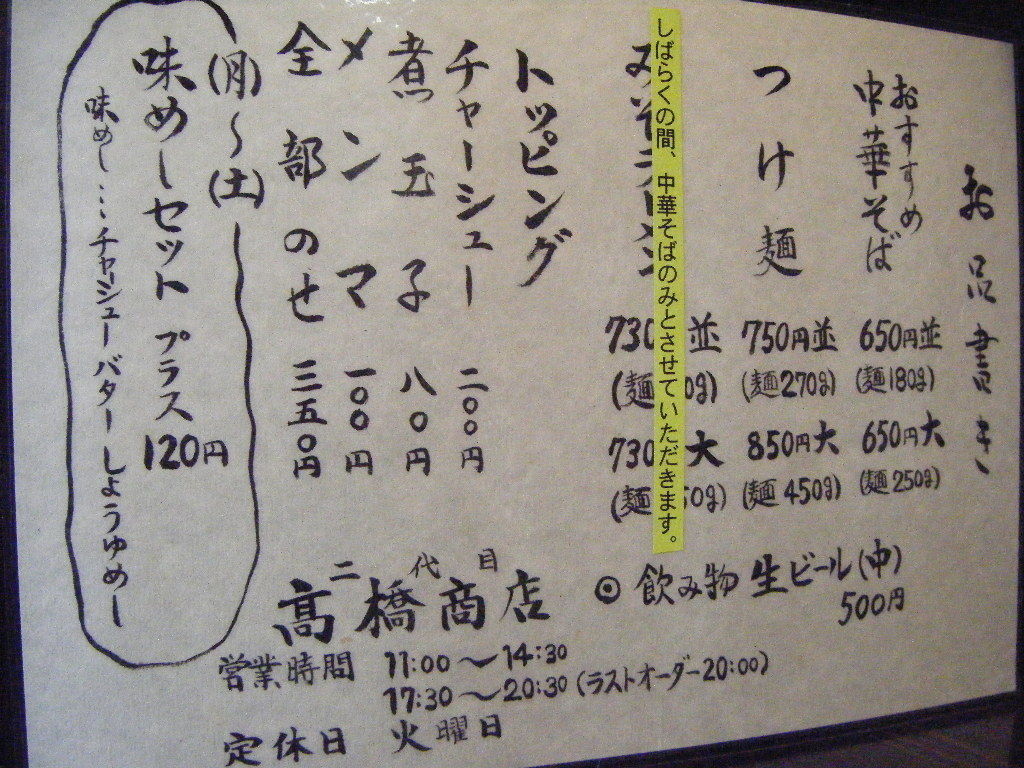 お品書き
おすすめ
中華そば
650円並
(麺180g)
650円大
(麺250g)
つけ麺
750円並
(麺270g)
850円大
(麺450g)
しばらくの間、中華そばのみとさせていただきます。
730 並
(麺 0g)
730 大
(麺 50g)
トッピング
チャーシュー 二〇〇円
煮玉子 八〇円
メンマ 一〇〇円
全部のせ 三五〇円
(月)～(土)
味めしセット プラス120円
味めし…チャーシューバターしょうゆめし
◎飲み物 生ビール(中)
500円
二代目
高橋商店
営業時間 11:00～14:30
17:30～20:30(ラストオーダー20:00)
定休日 火曜日